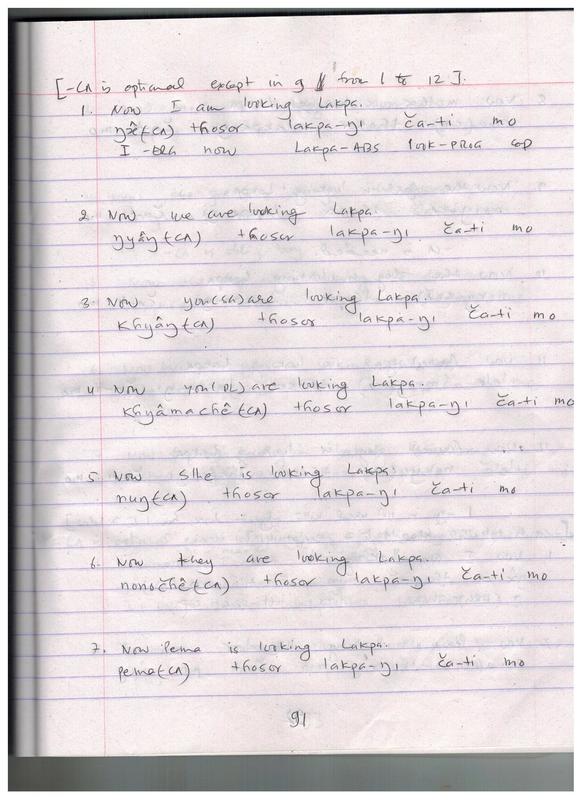 [-cʌ is optional except in 9 from 1 to 12].
1. Now I am looking Lakpa.
ŋx̂(cʌ) thosor lakpa-ŋı ča-ti mo
I -ERG now Lakpa-ABS look-PROG COP
2. Now we are looking Lakpa.
ŋyâŋ(cʌ) thosor lakpa-ŋı ča-ti mo
3. Now you(SG) are looking Lakpa.
khyâŋ(cʌ) thosor lakpa-ŋı ča-ti mo
4. Now you(PL) are looking Lakpa.
khyâmachê(cʌ) thosor lakpa-ŋı ča-ti mo
5. Now S/he is looking Lakpa
nuŋ(cʌ) thosor lakpa-ŋı ča-ti mo
6. Now they are looking Lakpa.
nonočhê(cʌ) thosor lakpa-ŋı ča-ti mo
7. Now Pema is looking Lakpa.
pema(cʌ) thosor lakpa-ŋı ča-ti mo
91